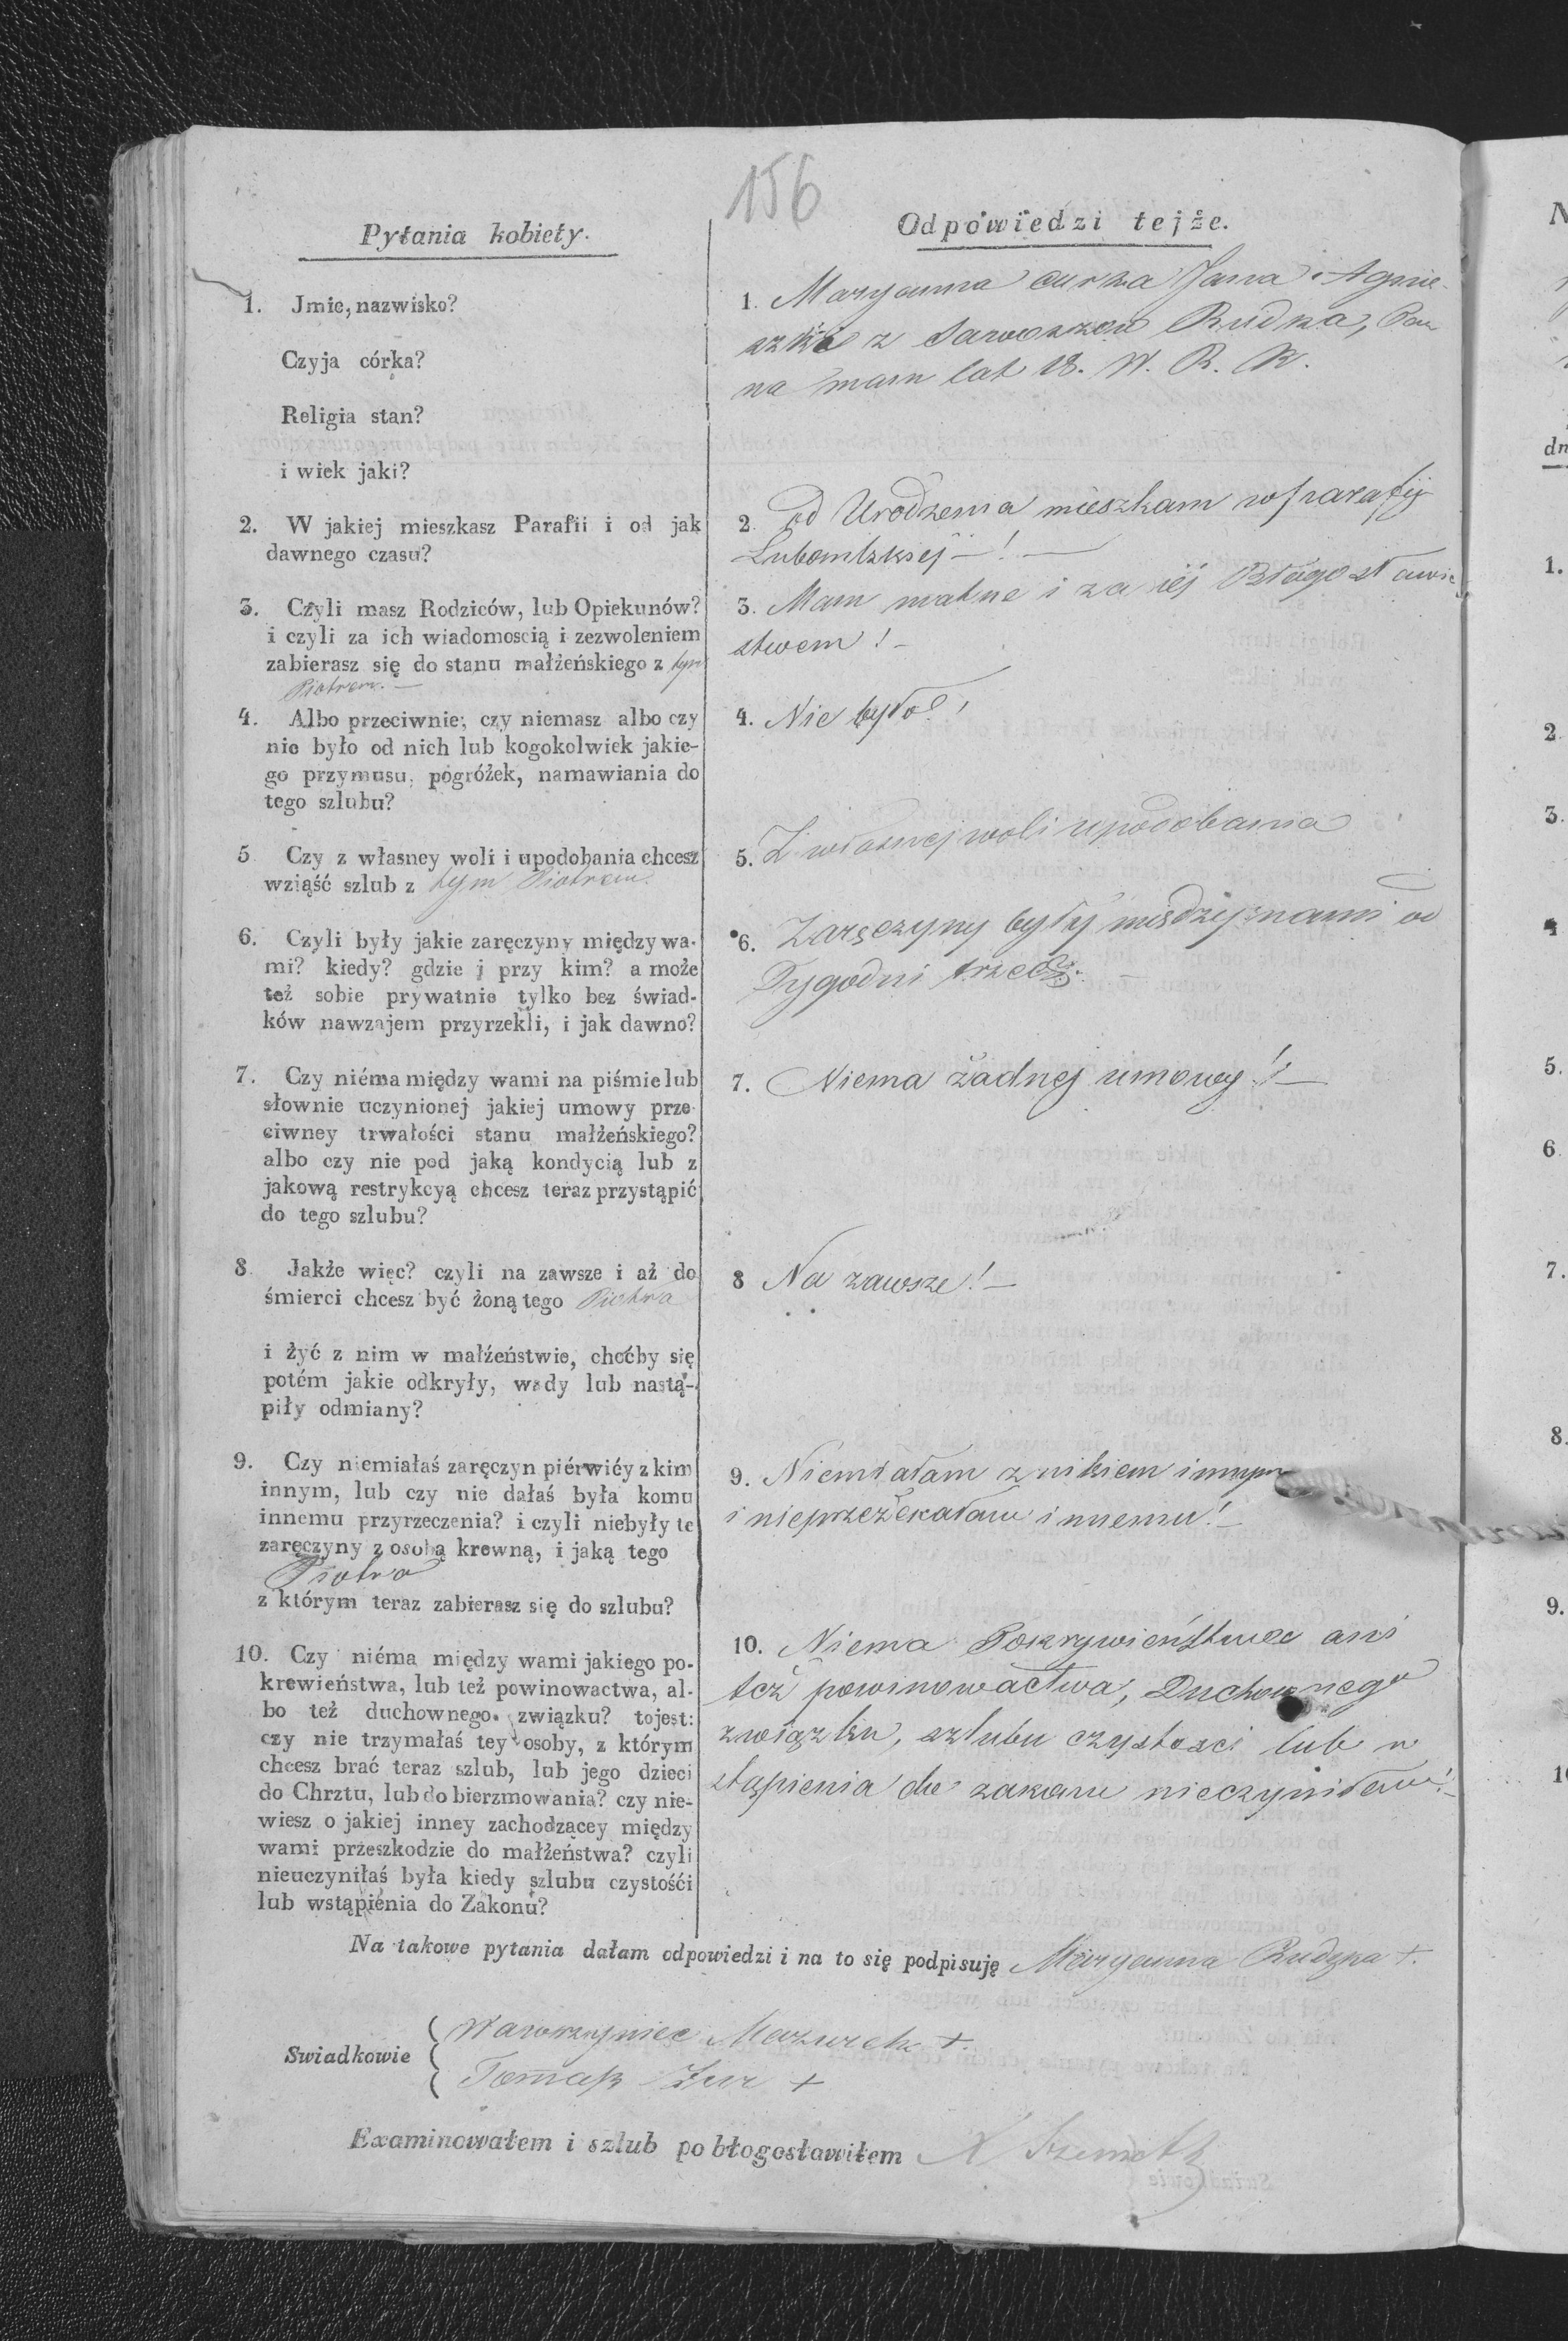 156
Pytania kobiety.
Odpowiedzi tejże.
1. Jmie, nazwisko?
Czyja córka?
Religia stan?
i wiek jaki?
1. Maryanna curka Jana Agnie-
szki z Rudka, Pan
na mam lat 18. W. R. K.
2. W jakiej mieszkasz Parafii i od jak
dawnego czasu?
2. od Urodzenia mieszkam w parafij
!
3. Czyli masz Rodziców, lub Opiekunów?
i czyli za ich wiadomoscią i zezwoleniem
zabierasz się do stanu małżeńskiego z tym
Piotrem.
3. Mam matne i za iéj Błogosławie
stwem!
4. Albo przeciwnie, czy niemasz albo czy
nie było od nich lub kogokolwiek jakie-
go przymusu, pogróżek, namawiania do
tego szlubu?
4. Nie było!
5 Czy z własney woli i upodobania chcesz
wziąść szlub z tym Piotrem.
5. Z własnej woli upodobania
6. Czyli były jakie zaręczyny między wa-
mi? kiedy? gdzie i przy kim? a może
też sobie prywatnie tylko bez świad-
ków nawzajem przyrzekli, i jak dawno?
6. Zaręczyny były międzyznami od
Tygodni trzech.
7. Czy niéma między wami na piśmie lub
słownie uczynionej jakiej umowy prze-
ciwney trwałości stanu małżeńskiego?
albo czy nie pod jaką kondycią lub z
jakową restrykcyą chcesz teraz przystąpić
do tego szlubu?
7. Niema żadnej umowy!
8 Jakże więc? czyli na zawsze i aż do
śmierci chcesz być żoną tego Piotra
i żyć z nim w małżeństwie, choćby się
potém jakie odkryły, wady lub nastą-
piły odmiany?
8 Na zawsze!
9. Czy niemiałaś zaręczyn piérwiéy z kim
innym, lub czy nie dałaś była komu
innemu przyrzeczenia? i czyli niebyły te
zaręczyny z osobą krewną, i jaką tego
Piotra
z którym teraz zabierasz się do szlubu?
9. Niemiałam z nikiem innym
i nieprzeżekałam innemu!
10. Czy niéma między wami jakiego po-
krewieństwa, lub też powinowactwa, al-
bo też duchownego związku? tojest:
czy nie trzymałaś tey osoby, z którym
chcesz brać teraz szlub, lub jego dzieci
do Chrztu, lub do bierzmowania? czy nie-
wiesz o jakiej inney zachodzącey między
wami przeszkodzie do małżeństwa? czyli
nieuczyniłaś była kiedy szlubu czystośći
lub wstąpienia do Zakonu?
10. Niema Pokrywieństwa ani
też powinowactwa, Duchownego
związku, szlubu czystosci lub w
stąpienia do zakonu nieczyniłam!
Na takowe pytania dałam odpowiedzi i na to się podpisuję Maryanna Rudzka +.
Swiadkowie
Wawrzyniec Mazurek +.
Tomasz Żur +
Examinowałem i szlub pobłogosławiłem X